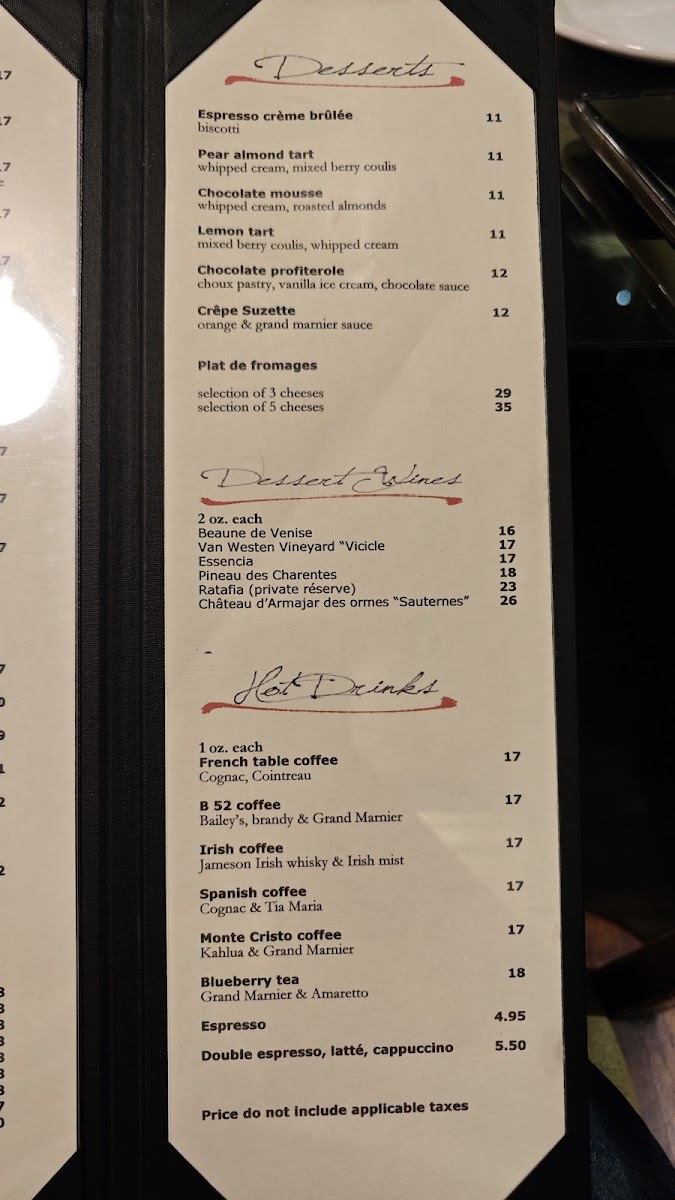 Desserts
Espresso crème brûlée 11
biscotti
Pear almond tart 11
whipped cream, mixed berry coulis
Chocolate mousse 11
whipped cream, roasted almonds
Lemon tart 11
mixed berry coulis, whipped cream
Chocolate profiterole 12
choux pastry, vanilla ice cream, chocolate sauce
Crêpe Suzette 12
orange & grand marnier sauce
Plat de fromages
selection of 3 cheeses 29
selection of 5 cheeses 35
Dessert Wines
2 oz. each
Beaune de Venise 16
Van Westen Vineyard "Vicicle 17
Essencia 17
Pineau des Charentes 18
Ratafia (private réserve) 23
Château d'Armajar des ormes "Sauternes" 26
Hot Drinks
1 oz. each
French table coffee 17
Cognac, Cointreau
B 52 coffee 17
Bailey's, brandy & Grand Marnier
Irish coffee 17
Jameson Irish whisky & Irish mist
Spanish coffee 17
Cognac & Tia Maria
Monte Cristo coffee 17
Kahlua & Grand Marnier
Blueberry tea 18
Grand Marnier & Amaretto
Espresso 4.95
Double espresso, latté, cappuccino 5.50
Price do not include applicable taxes